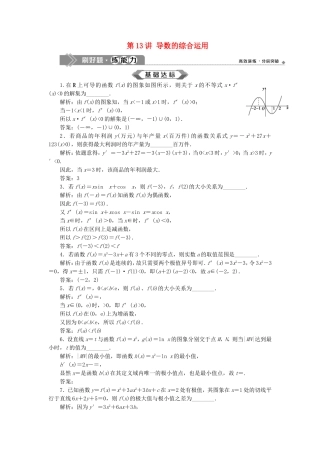 第13讲 导数的综合运用
刷好题·练能力
基础达标
1.在R上可导的函数f(x)的图象如图所示，则关于x的不等式x·
f′(x)<0的解集为________．
解析：由图可知，当x<－1或x>1时，f′(x)>0；当－1<x<1时，
f′(x)<0．
答案：
2．某商品的年利润y(万元)与年产量x(百万件)的函数关系式为y＝－x³＋27x＋
123(x>0)，则获得最大利润时的年产量为________百万件．
解析：依题意得，y′＝－3x²＋27＝－3(x－3)(x＋3)，当0<x<3时，y′>0；当x>3时，y
′<0.
因此，当x＝3时，该商品的年利润最大．
答案：3
3．若f(x)＝xsin x＋cos x，则f(－3)，f，f(2)的大小关系为________．
解析：由f(－x)＝f(x)知，函数f(x)为偶函数，
因此f(－3)＝f(3)．
又f′(x)＝sin x＋xcos x－sin x＝xcos x，
当x∈时，f′(x)>0，当x∈时，f′(x)<0.
所以f(x)在区间上是减函数，
所以f>f(2)>f(3)＝f(－3)．
答案：f(－3)<f(2)<f
4．若函数f(x)＝x³－3x＋a有3个不同的零点，则实数a的取值范围是________．
解析：由于函数f(x)是连续的，故只需要两个极值异号即可.f′(x)＝3x²－3，令3x²－3
＝0，得x＝±1，只需f(－1)·f(1)<0，即(a＋2)(a－2)<0，故a∈(－2，2)．
答案：(－2，2)
5．若f(x)＝，0<a<b<e，则f(a)，f(b)的大小关系为________．
解析：f′(x)＝，
当x∈(0，e)时，>0，即f′(x)>0，
所以f(x)在(0，e)上为增函数，
又因为0<a<b<e，所以f(a)<f(b)．
答案：f(a)<f(b)
6．设直线x＝t与函数f(x)＝x²，g(x)＝ln x的图象分别交于点M，N，则当MN达到最
小时，t的值为________．
解析：|MN|的最小值，即函数h(x)＝x²－ln x的最小值，
h′(x)＝2x－＝，
显然x＝是函数h(x)在其定义域内唯一的极小值点，也是最小值点，故t＝.
答案：
7．已知函数f(x)＝x³＋3ax²＋3bx＋c在x＝2处有极值，其图象在x＝1处的切线平
行于直线6x＋2y＋5＝0，则f(x)的极大值与极小值之差为________．
解析：因为y′＝3x²＋6ax＋3b，